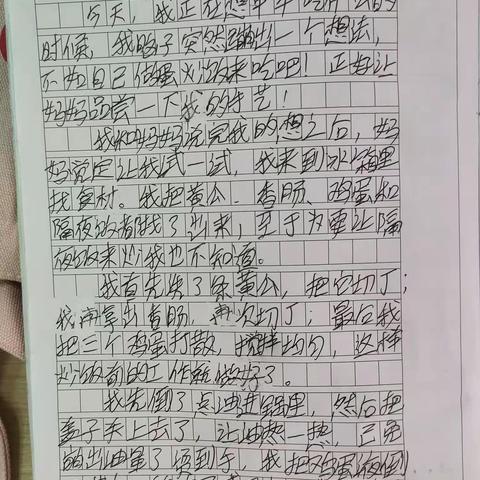 今天，我正在想中午吃什么的
时候，我脑子突然蹦出一个想法，
不如自己做蛋炒饭来吃吧！正好让
妈妈品尝一下我的手艺！
我和妈妈说完我的想之后，妈
妈觉定让我试一试，我来到冰箱里
找食材。我把黄瓜、香肠、鸡蛋和
隔夜饭都找了出来，至于为要让隔
夜饭来炒我也不知道。
我首先洗了条黄瓜，把它切丁；
我再拿出香肠，再次切丁；最后我
把三个鸡蛋打散，搅拌均匀，这样
炒饭前的工作就做好了。
我先倒了点油进锅里，然后把
盖子关上去了，让油热一热，已免
的出油量了烫到手，我把鸡蛋液倒